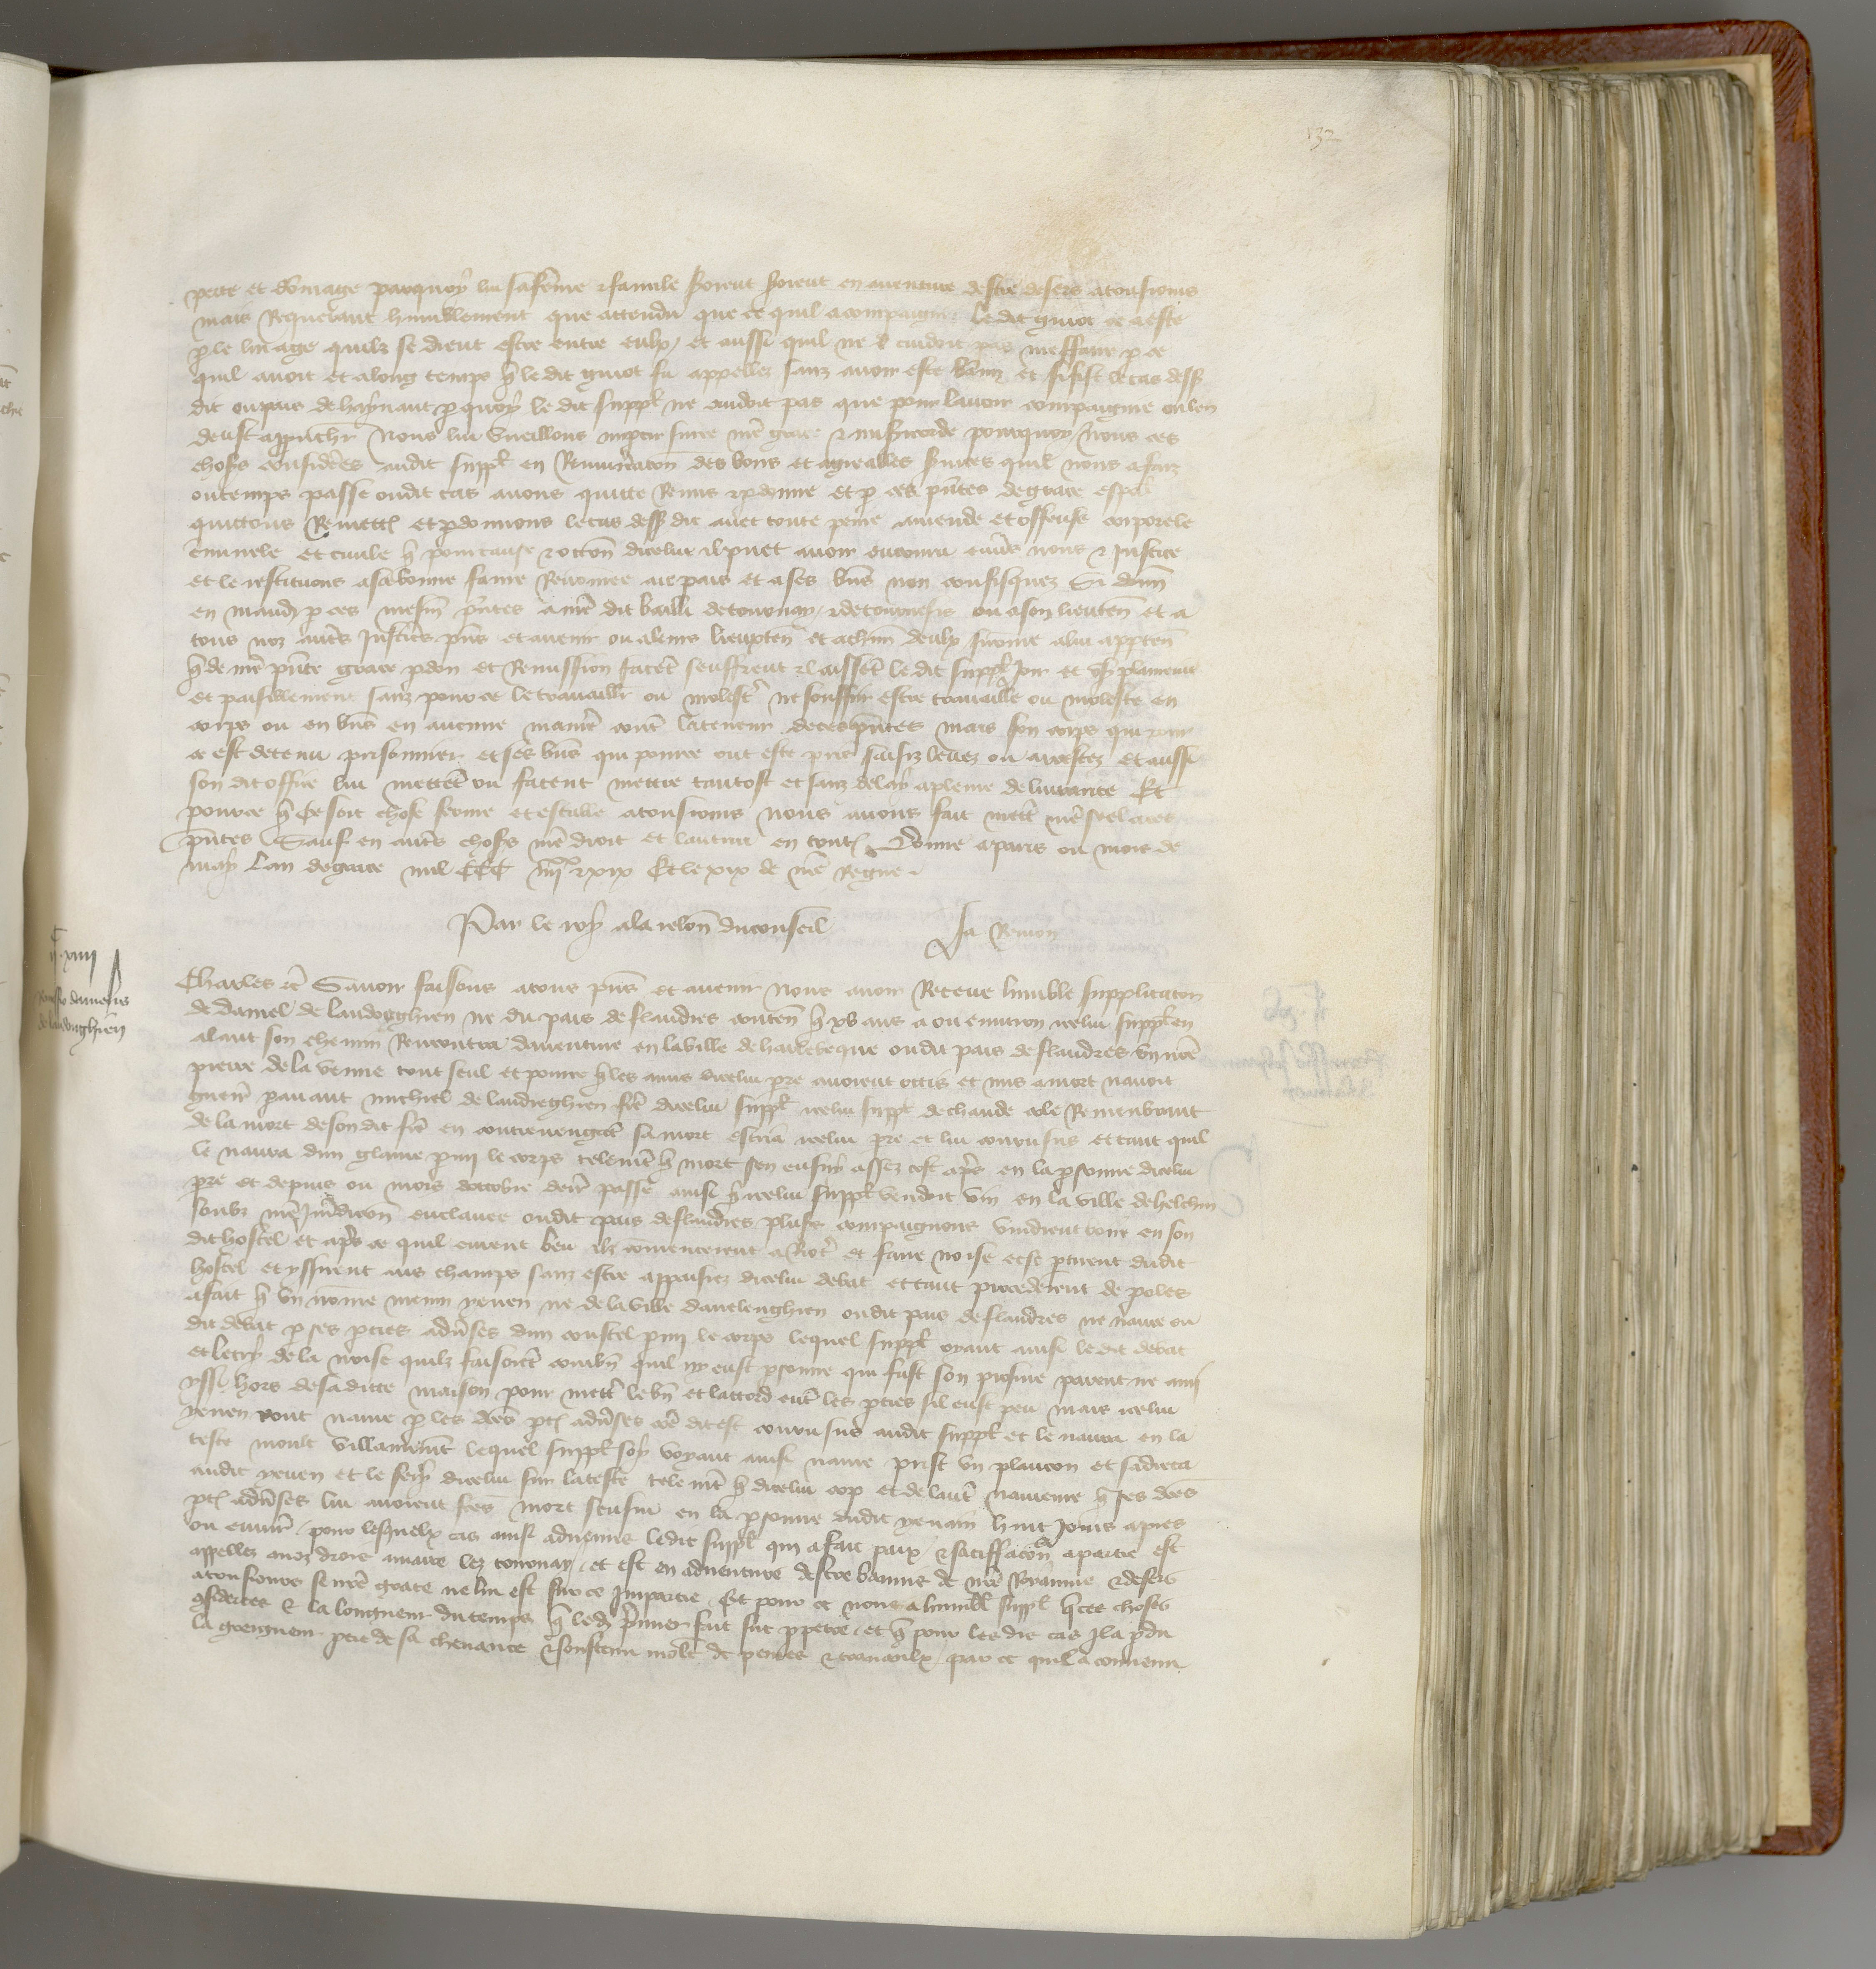 132
perte et domage parquoy lui sa feme & famile seroient en aventure destre desers atousiours
mais Requerant humblement que attendu que ce quil acompaigna ledit guiot ce a este
p le linage quilz se dient estre entre eulx / et aussi quil ne cuidoit pas meffaire p ce
quil avoit et a long temps q ledit guiot fu appellez sanz avoir este banny et si fist le cas dess
dit ou pais de haynaut p quoy le dit suppl ne cuidoit pas que pour lavoir compaignie on len
deust appreher Nous lui vueillons impar sur ce nre grace & misericorde pourquoy / Nous ces
choses considees audit suppl en Remuneraton des bons et agreables services quil nous a faiz
ou temps passe ou dit cas avons quitte Remis & pdonne et p ces pntes de grace espal
quittons Remettons et pdonnons le cas dess dit avec toute peine amende et offense corporele
criminele et civile q pour cause & occon dicelui il puet avoir encouru envs nous & Justice
et le restituons a sa bonne fame Renomee au pais et a ses bns non confisquez Si donn
en mandem p ces mesm pntes a nre dit bailli de tournay / & de tournesis ou a son lieuten et a
tous noz autes Justices pns et avenir ou a leurs lieuxten et a chun deulx si come a lui apptien
q de nre pnte grace pdon et Remission facent seuffrent & laissent le dit suppl Joir et user plainemt
et paisiblement sanz pour ce le travaillr ou molestr ne souffrir estre travaille ou moleste en
corps ou en biens en aucune manre contre la teneur de ces pntes mais son corps qui pour
ce est detenu prisonnier et ses bns qui pour ce ont este prins saisiz levez ou arrestez et aussi
son dit office lui mettent ou facent mettre tantost et sanz delay a pleine delivrance Et
pour ce q ce soit chose ferme et estable atousiours nous avons fait mettre nre seel a ces
pntes Sauf en autes choses nre droit et lautrui en toutes Donne a paris ou mois de
may Lan de grace mil CCC iiijxx & xix Et le xix de nre Regne.
Par le roy a la relon du conseil Ja Remon
ij xiiij
Remissio danielis
de landenghien
Charles etc Savoir faisons a tous pns et avenir Nous avoir Receue humble supplicaton
de daniel de landeghien ne du pais de flandres conten q xv ans a ou environ icelui suppl en
alant son chemin Rencontra daventure en la ville de harlebeque ou dit pais de flandres un nre
pierre de la venne tout seul et pour ce q les amis dicelui pre avoient occis et mis a mort navoit
guer pavant michiel de landreghien fre dicelui suppl icelui suppl de chaude cole Remenbrant
de la mort de son dit fre en contrevengant sa mort escria icelui pre et lui couru sus et tant quil
le navra dun glaive pmi le corps telemt q mort sen ensuy assez tost apres en la psonne dicelui
pre et depuis ou mois doctobre dern passe ainsi q icelui suppl vendoit vin en la ville de helchin
soubz nre Juridicon enclavee ou dit pais de flandres plus compaignons vindrent boire en son
dit hostel et apres ce quil eurent beu ilz comencerent a Rioter et faire noise et se ptirent dudit
hostel et yssirent aus champs sanz estre appaisiez dicelui debat et tant procederent de poles
a fait q un nome menin yeven ne de la ville dantlenghien ou dit pais de flandres ne navre ou
dit debat p ses pties adverses dun coustel pmi le corps lequel suppl oyant ainsi le dit debat
et le cry de la noise quilz faisoient combn quil ny eust psonne qui fust son prosme parent ne ami
yssi hors de sa ditte maison pour mettre le bn et laccord ent les pties sil eust peu mais icelui
yeven tout navre p les dces pties adverses coe dit est couru sus audit suppl et le navra en la
teste moult villainemt lequel suppl soy voyant ainsi navre prist un plancon et sadreca
audit yeven et le fery dicelui sur la teste telemt q dicelui cop et de laute navreure q les dces
pties adverses lui avoient fces mort sensui en la psonne dudit yevain huit Jours apres
ou environ / pour lesquelx cas ainsi advenus ledit suppl qui a fait paix & satiffacon a partie est
appellez a noz droiz a maire lez tournay / et est en adventure destre bannis de nre Royaume & desers
atousiours se nre grace ne lui est sur ce Impartie. Et pour ce nous a humbl suppl q ces choses
gsiderees & la longueur du temps q led premier fait fut ppetre / et q pour les diz cas Il a pdu
la greigneur ptie de sa chevance & soustenu molt de peines & travaulx / par ce quil a convenu